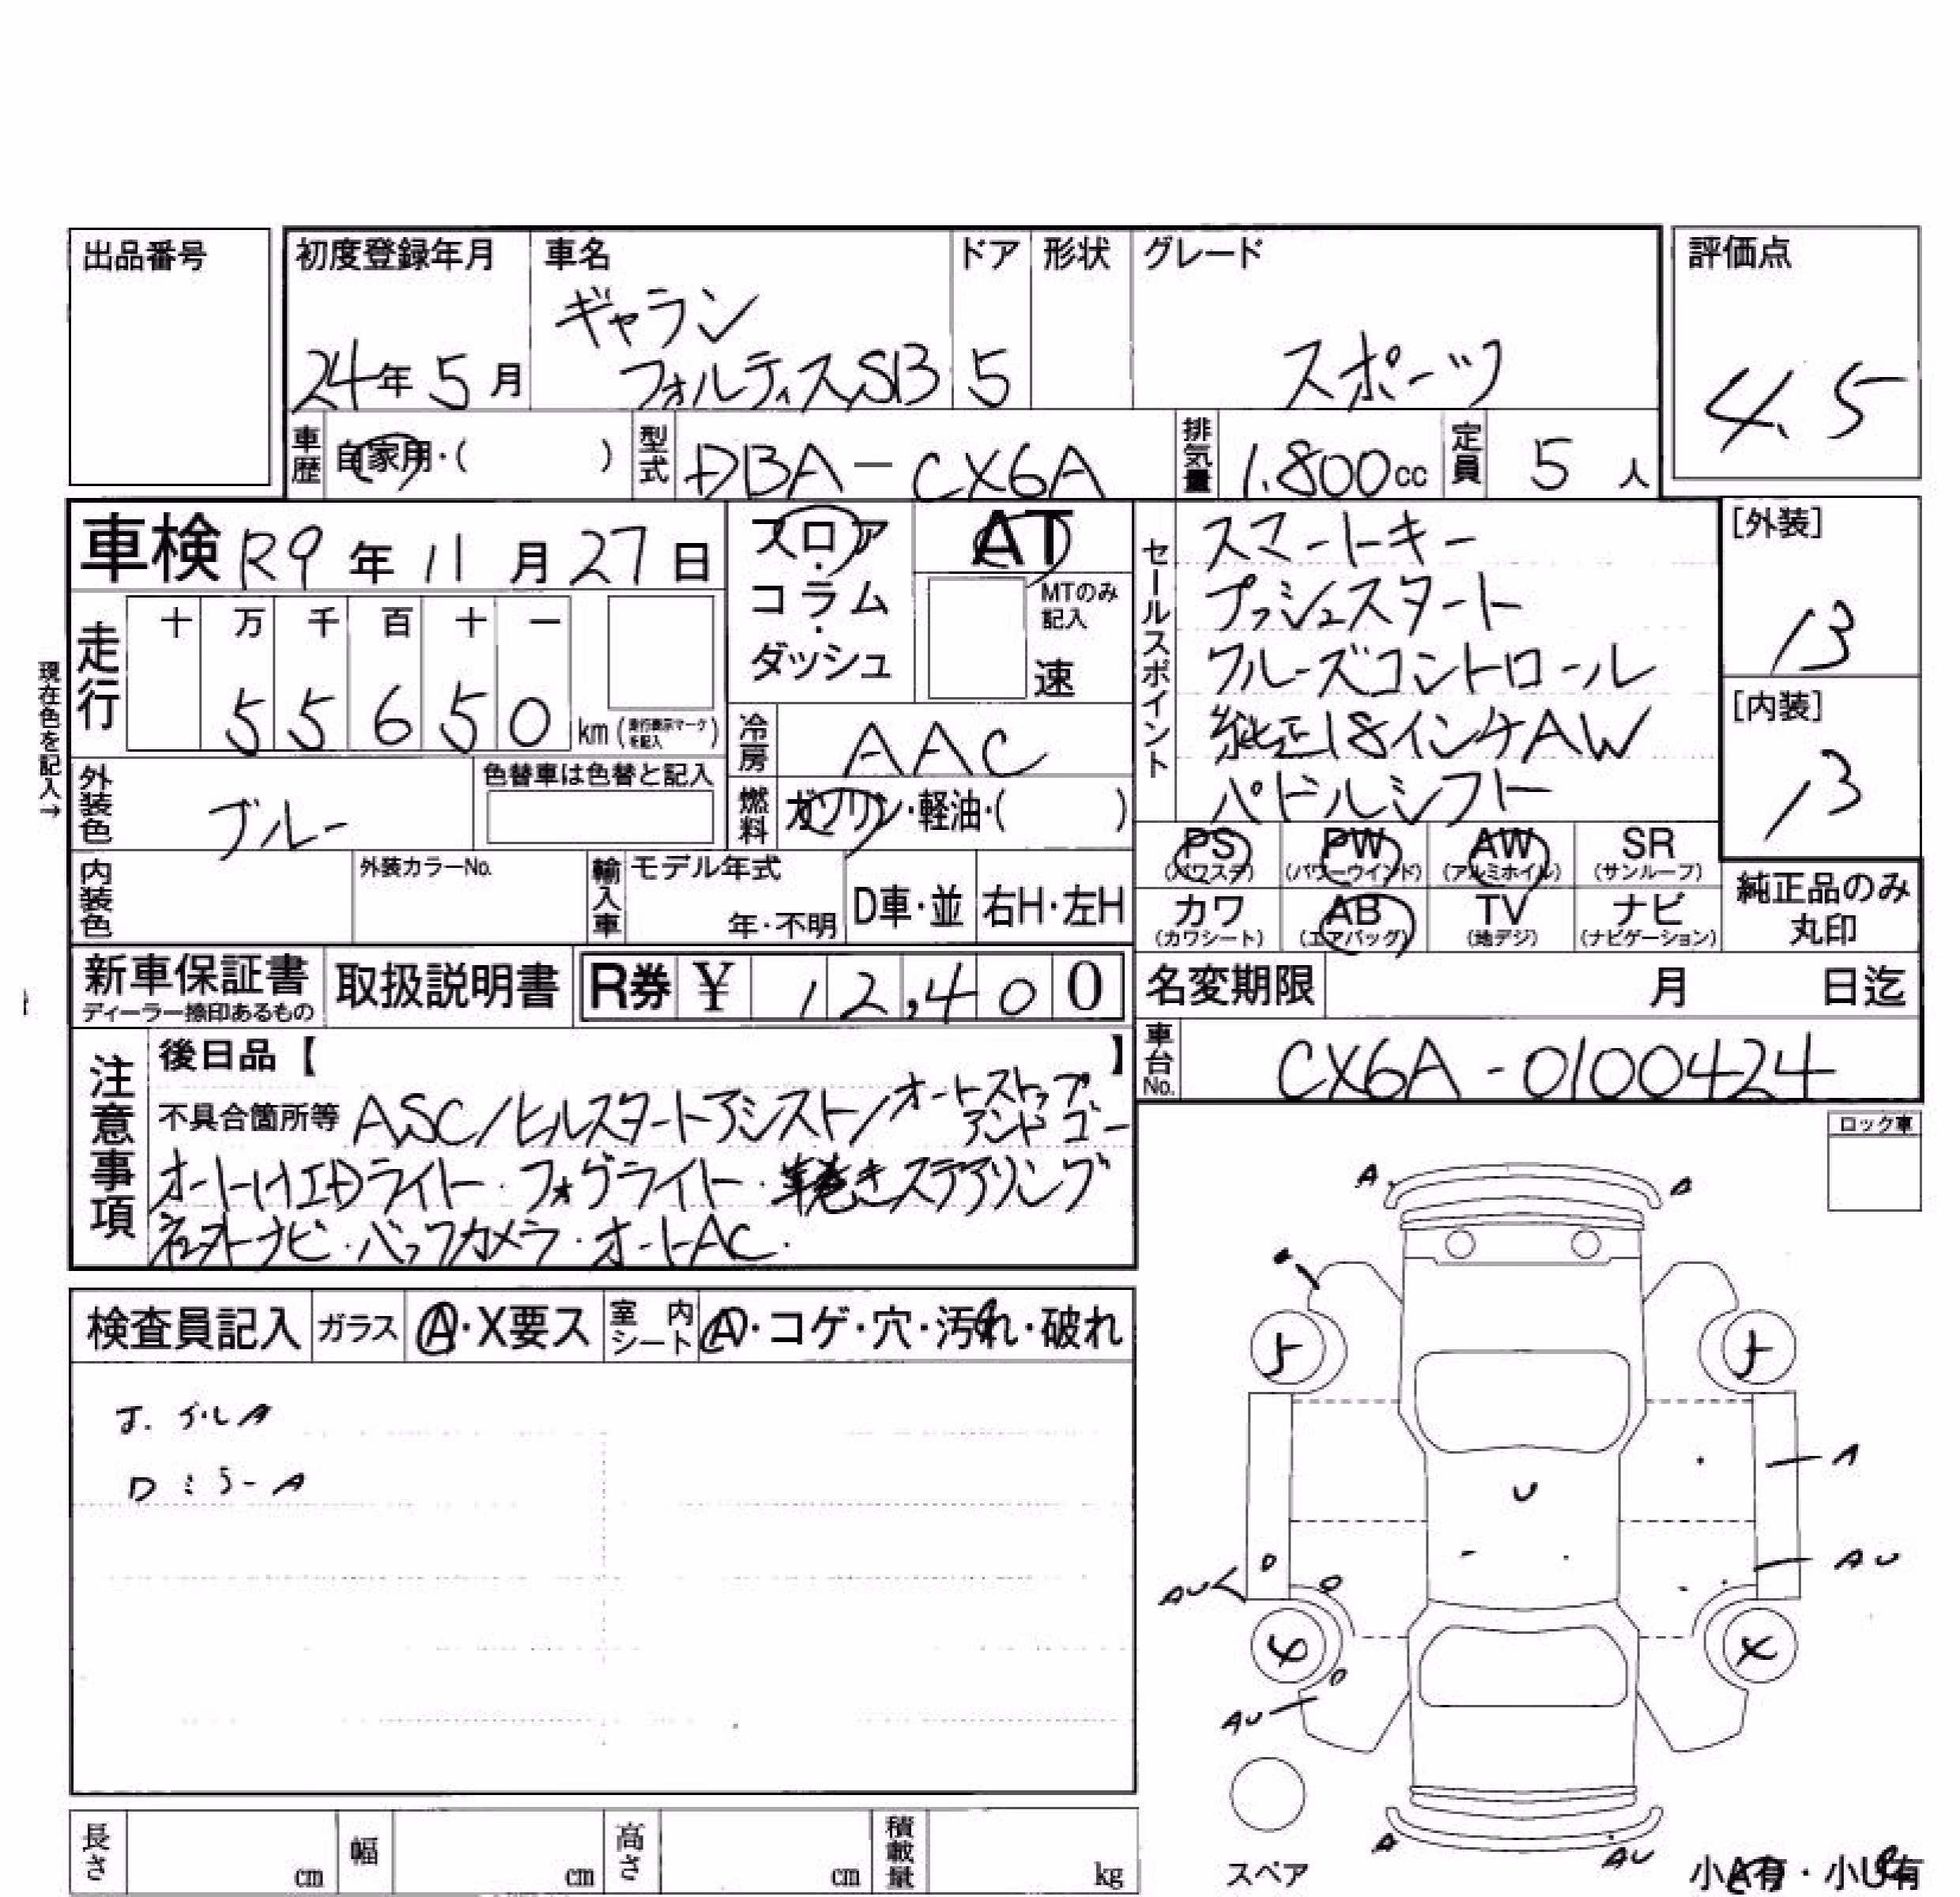 出品番号
初度登録年月 車名 ドア 形状 グレード 評価点
ギャラン
24年5月 フォルティスSB 5 スポーツ 4.5
車歴 自家用・( ) 型式 DBA-CX6A 排気量 1.800cc 定員 5人
車検 R9年11月27日
フロア・コラム・ダッシュ
AT
MTのみ記入
速
セールスポイント
スマートキー
プッシュスタート
クルーズコントロール
純正18インチAW
パドルシフト
[外装]
13
[内装]
13
現在色を記入→
走行 十 万 千 百 十 一
5 5 6 5 0 km(走行表示マークを記入)
冷房 AAC
外装色 ブルー 色替車は色替と記入
燃料 ガソリン・軽油・( )
内装色 外装カラーNo. 輸入車 モデル年式
年・不明 D車・並 右H・左H
PS (パワステ) PW (パワーウインド) AW (アルミホイル) SR (サンルーフ)
カワ (カワシート) AB (エアバッグ) TV (地デジ) ナビ (ナビゲーション)
純正品のみ
丸印
新車保証書 取扱説明書 R券 ¥ 12,400
ディーラー捺印あるもの
名変期限 月 日迄
車台No. CX6A-0100424
注意事項
後日品【 】
不具合箇所等 ASC/ヒルスタートアシスト/オートストップアンドゴー
オートHIDライト・フォグライト・革巻きステアリング
社外ナビ・バックカメラ・オートAC.
ロック車
検査員記入 ガラス A・X要ス 室内シート A・コゲ・穴・汚れ・破れ
D ミラー A
A A
5 ト
U
A
AU
AU
AU
A AU
スペア
小A有・小U有
長さ cm 幅 cm 高さ cm 積載量 kg